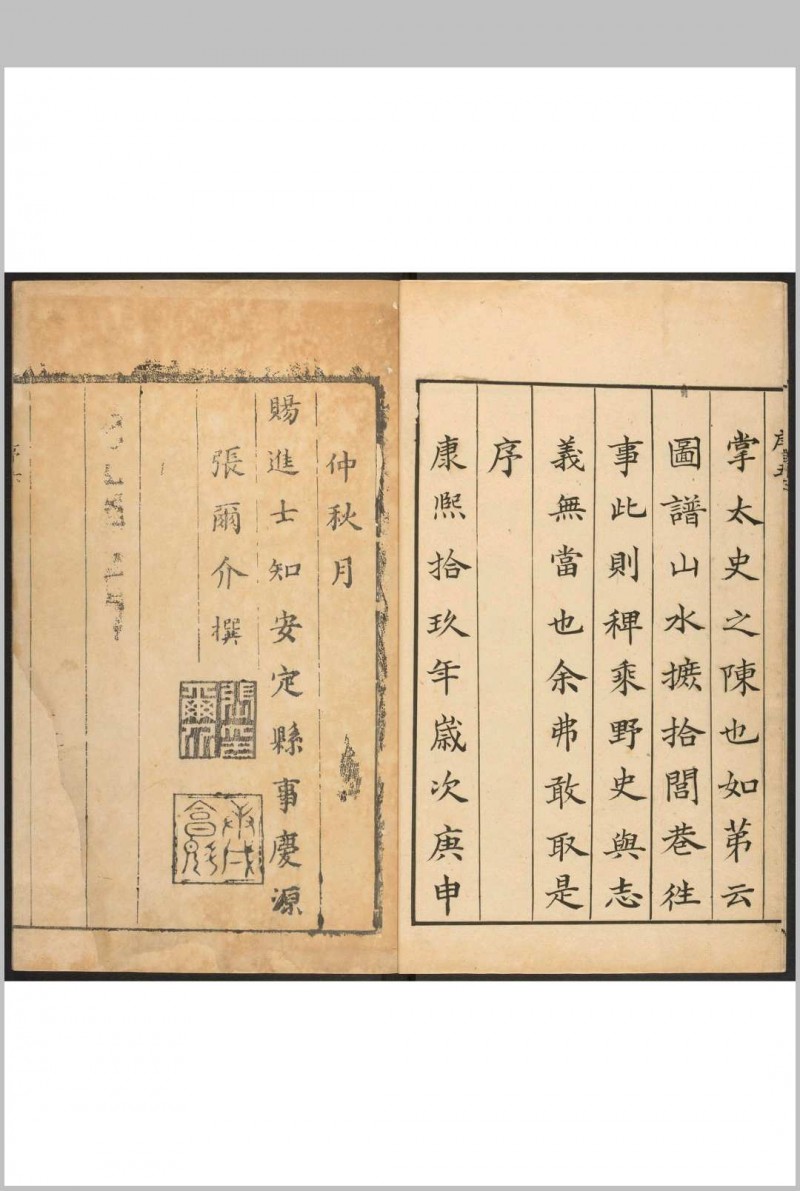 掌太史之陳也如苐云
圖譜山水摭拾閭巷徃
事此則稗乘野史與志
義無當也余弗敢取是
序
康熙拾玖年歲次庚申
仲秋月
賜進士知安定縣事慶源
張爾介撰